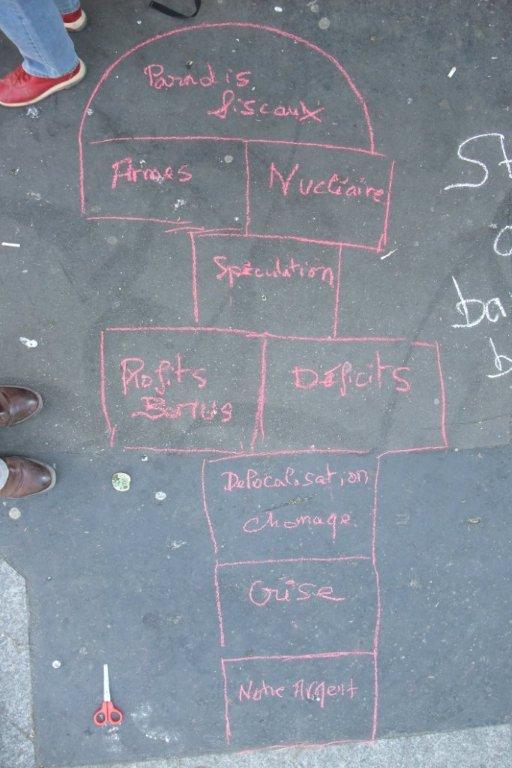 Paradis
fiscaux
Armes Nucléaire
Spéculation
Profits
Bonus
Déficits
Delocalisation
chomage
Crise
Notre Argent
St
ba
b